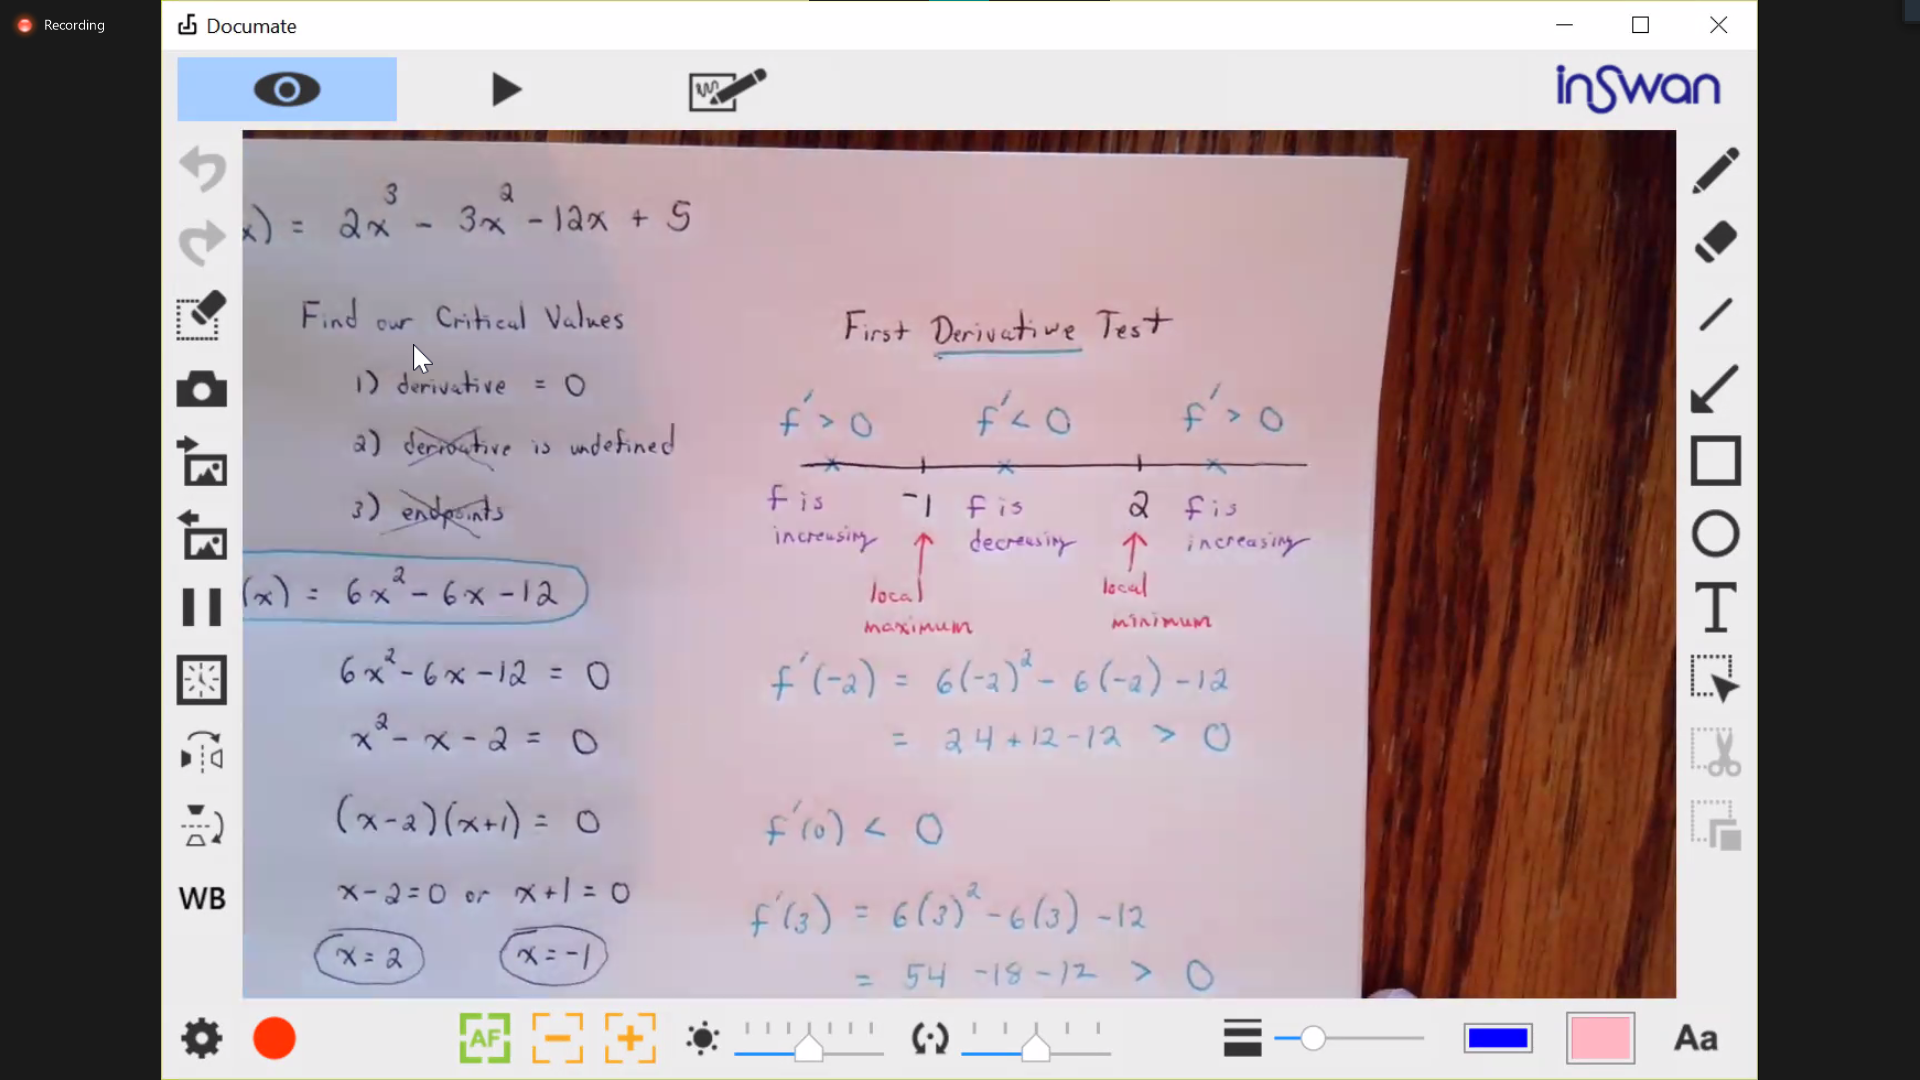 Recording
Documate
inSwan
x) = 2x³ - 3x² - 12x + 5
Find our Critical Values
1) derivative = 0
2) derivative is undefined
3) endpoints
(x) = 6x² - 6x - 12
6x² - 6x - 12 = 0
x² - x - 2 = 0
(x-2)(x+1) = 0
x-2=0 or x+1=0
x=2 x=-1
First Derivative Test
f' > 0 f' < 0 f' > 0
f is -1 f is 2 f is
increasing decreasing increasing
local local
maximum minimum
f'(-2) = 6(-2)² - 6(-2) - 12
= 24+12-12 > 0
f'(0) < 0
f'(3) = 6(3)² - 6(3) - 12
= 54 - 18 - 12 > 0
WB
AF
T
Aa